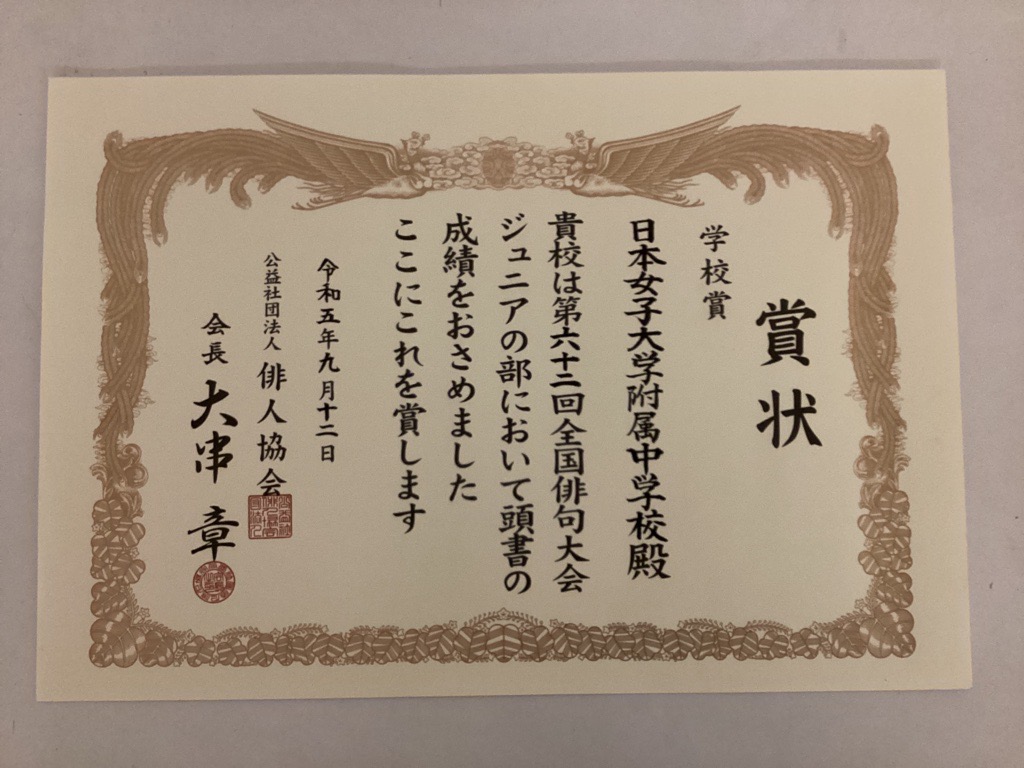 賞状
学校賞
日本女子大学附属中学校殿
貴校は第六十二回全国俳句大会
ジュニアの部において頭書の
成績をおさめました
ここにこれを賞します
令和五年九月十二日
公益社団法人 俳人協会
会長 大串 章